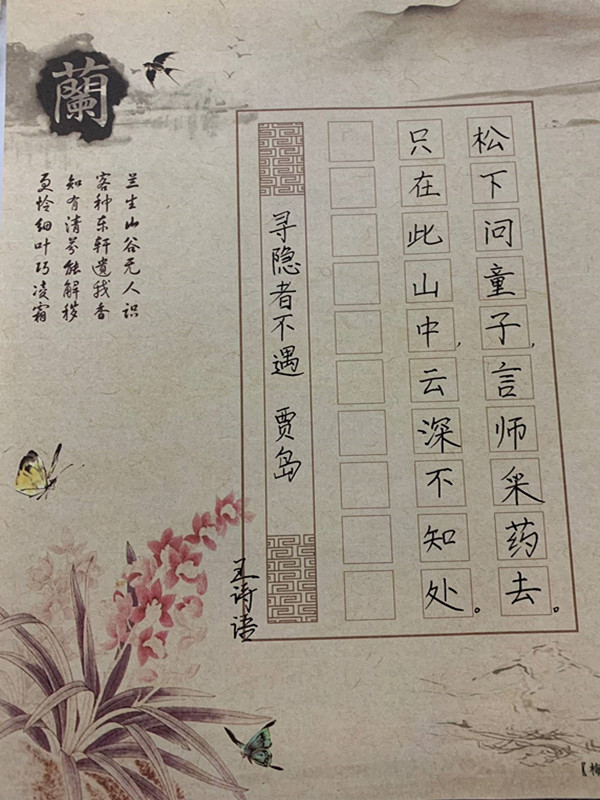 松下问童子,言师采药去。
只在此山中,云深不知处。
寻隐者不遇 贾岛
王诗语
蘭
兰生山谷无人识
客种东轩遗我香
知有清芬能解秽
更怜细叶巧凌霜
【梅